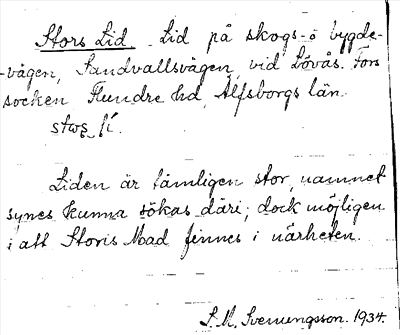 Stors Lid. Lid på skogs- o bygde-
vägen, Sandvallsvägen, vid Lövås. Fors
socken Flundre hd, Älfsborgs län.
Liden är tämligen stor, namnet
synes kunna sökas däri; dock möjligen
i att Storis Mad finnes i närheten.
S. M. Svenungsson. 1934.